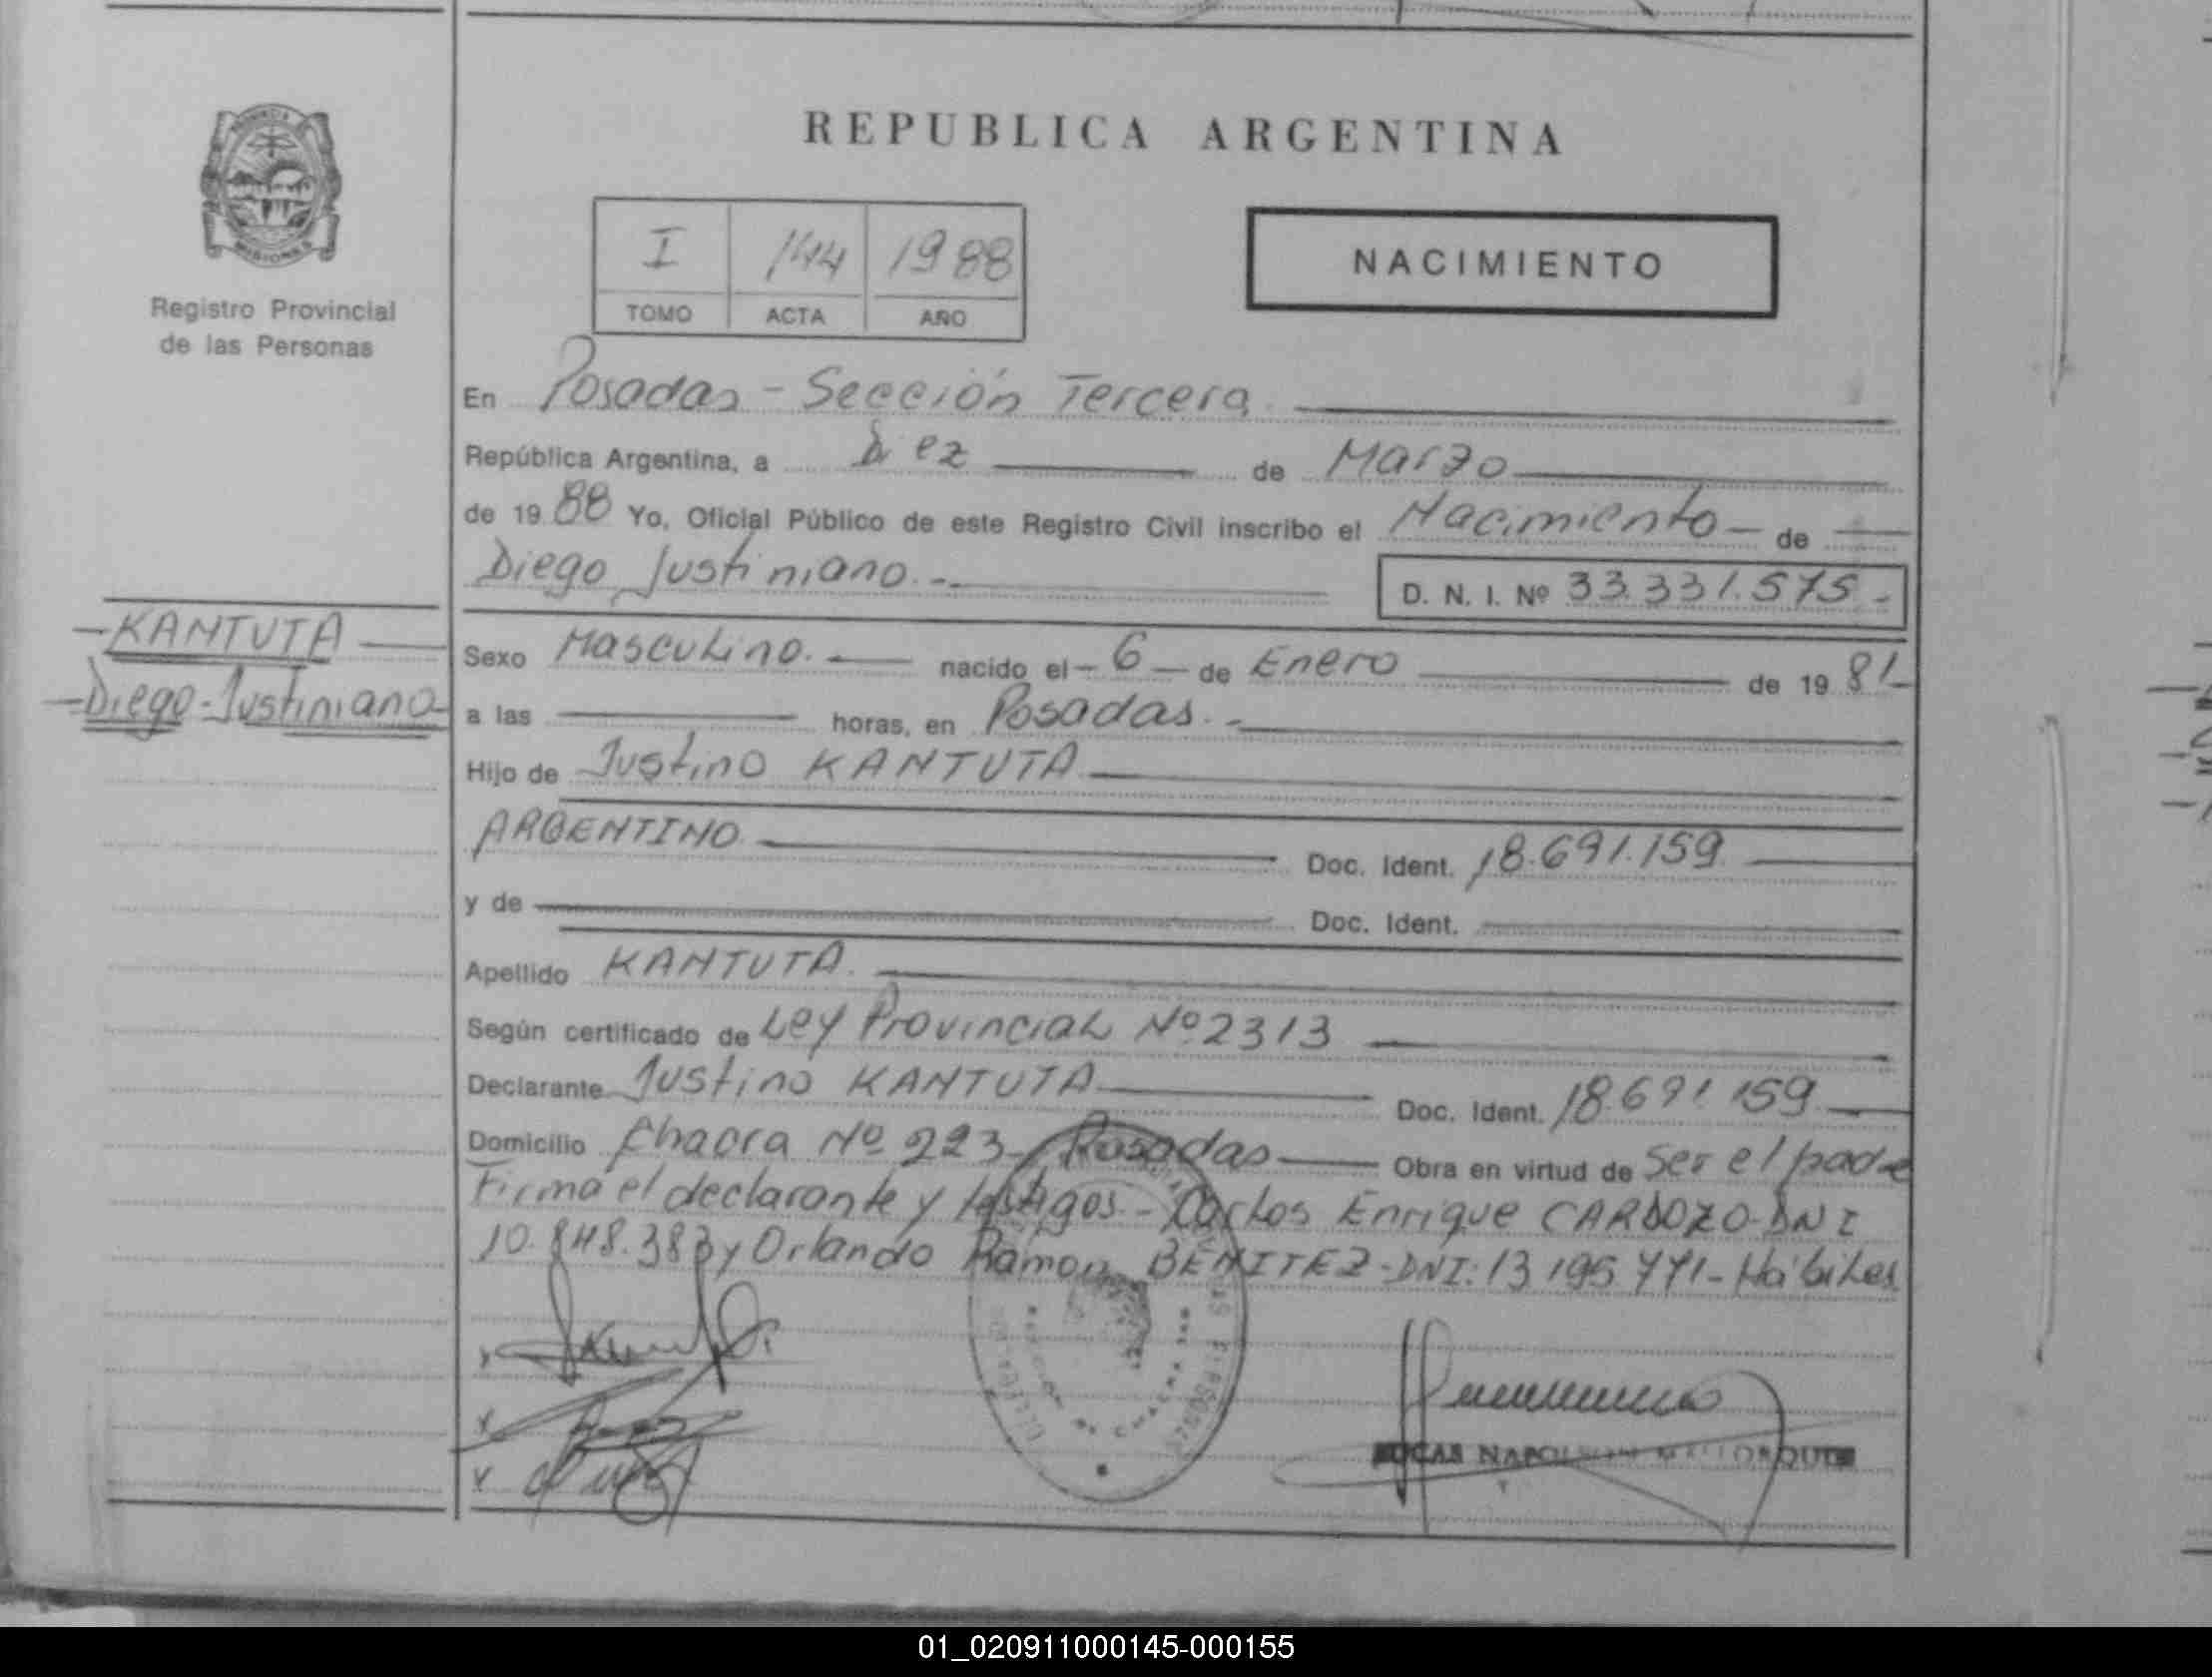 REPUBLICA ARGENTINA
Registro Provincial
de las Personas
I 144 1988
TOMO ACTA AÑO
NACIMIENTO
En Posadas - Sección Tercera
República Argentina, a Diez de Marzo
de 1988 Yo, Oficial Público de este Registro Civil inscribo el Nacimiento - de
Diego Justiniano.- D. N. I. Nº 33.331.575 -
- KANTUTA
- Diego - Justiniano -
Sexo Masculino. nacido el - 6 - de Enero de 1981
a las horas, en Posadas. -
Hijo de Justino KANTUTA
ARGENTINO Doc. Ident. 18.691.159
y de Doc. Ident.
Apellido KANTUTA.
Según certificado de Ley Provincial Nº 2313
Declarante Justino KANTUTA Doc. Ident. 18.691.159
Domicilio Chacra Nº 223 - Posadas Obra en virtud de Ser el padre
Firma el declarante y testigos - Carlos Enrique CARDOZO - DNI
10.848.383 y Orlando Ramon BENITEZ - DNI: 13 195 771 - Hábiles
NAPOLEON
01_020911000145-000155